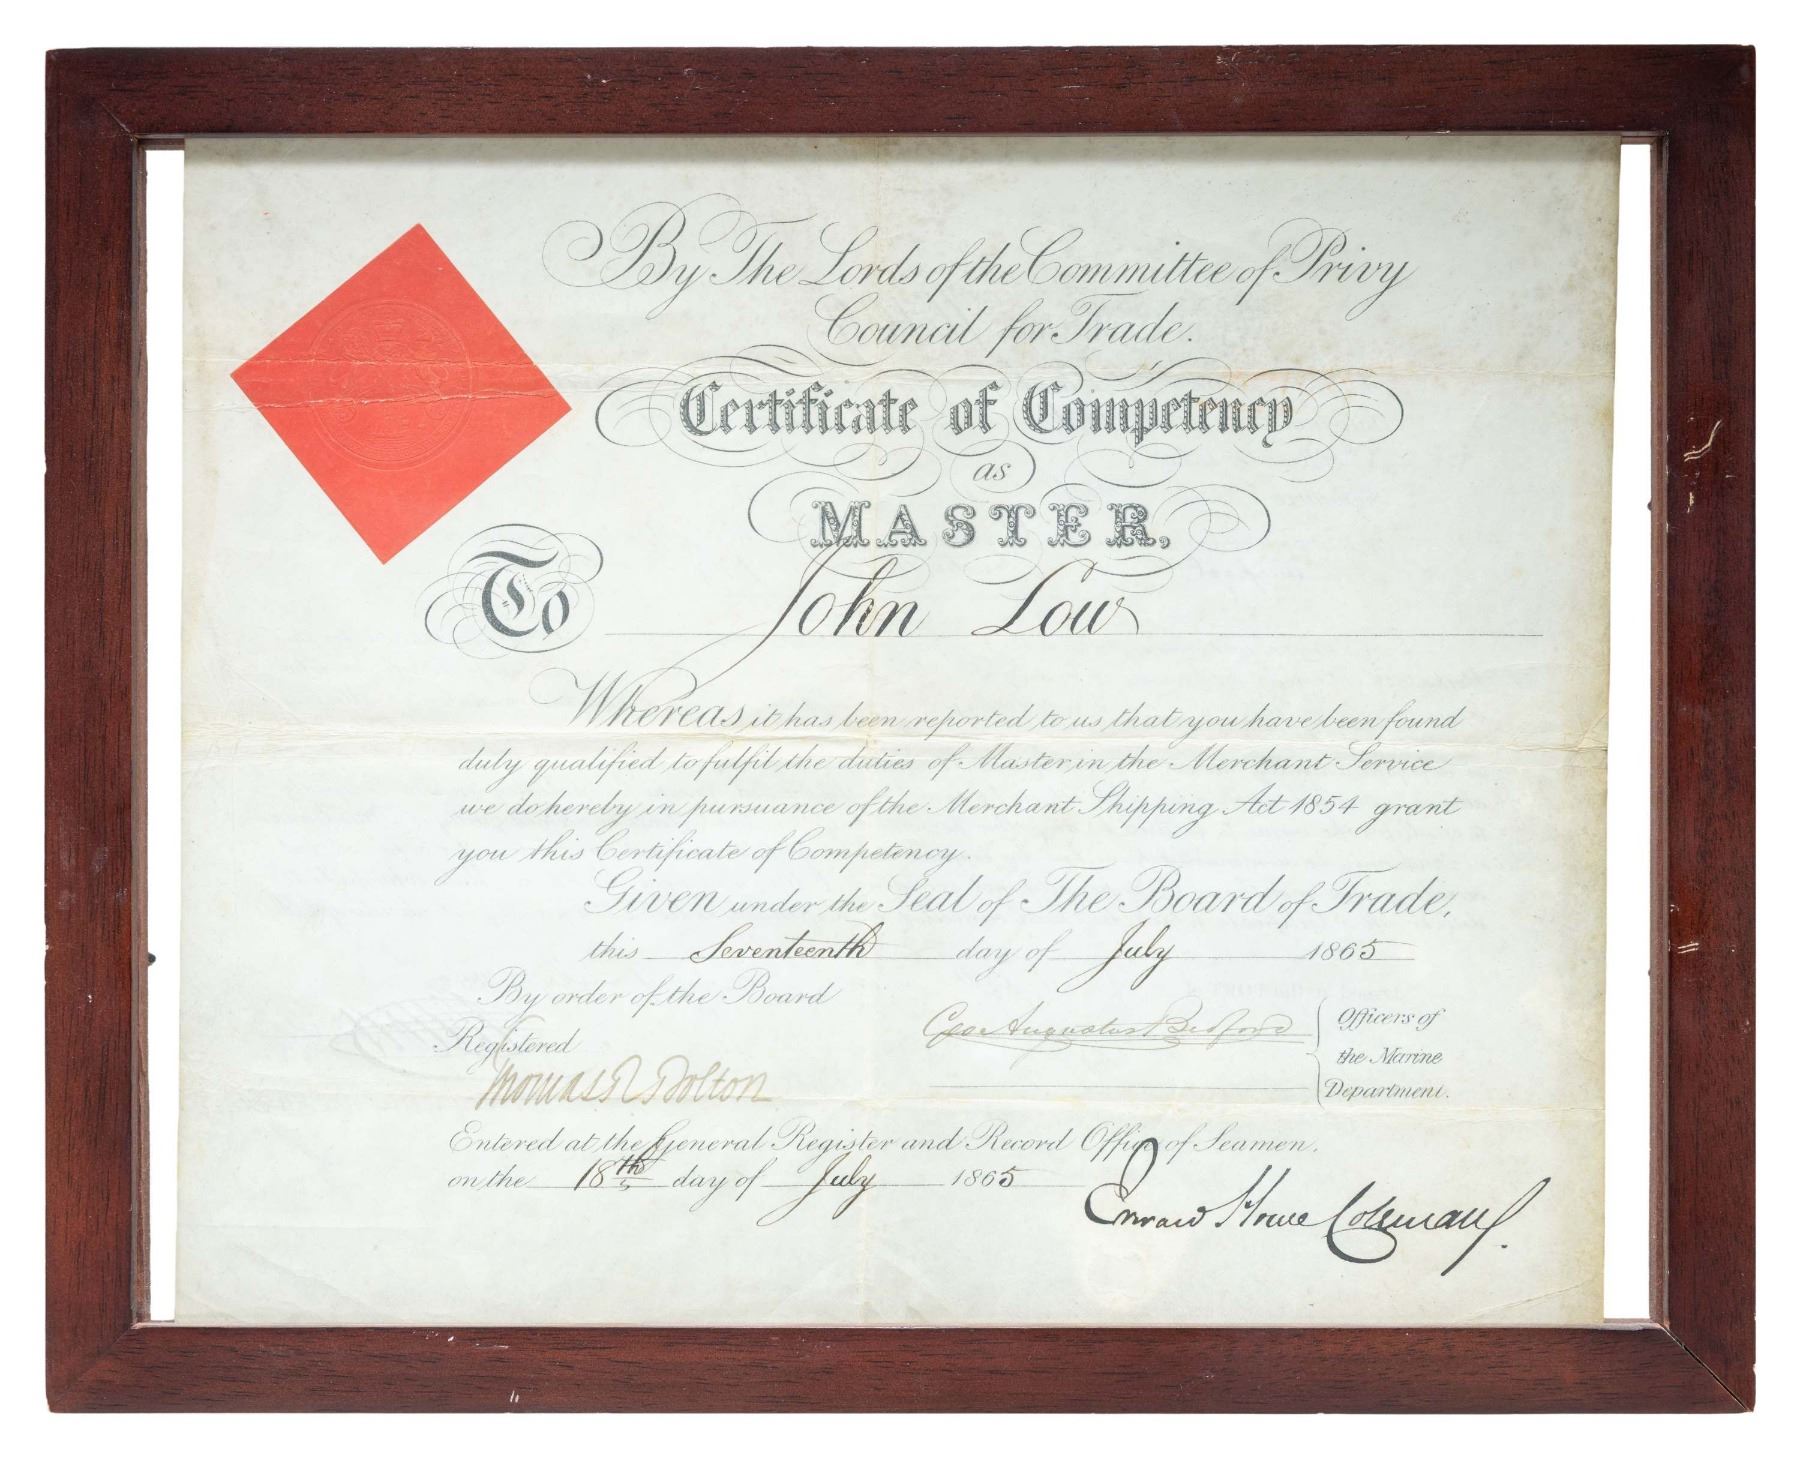 By The Lords of the Committee of Privy
Council for Trade.
Certificate of Competency
as
MASTER,
To John Low
Whereas it has been reported to us that you have been found
duly qualified to fulfil the duties of Master in the Merchant Service
we do hereby in pursuance of the Merchant Shipping Act 1854 grant
you this Certificate of Competency.
Given under the Seal of The Board of Trade,
this Seventeenth day of July 1865
By order of the Board
Geo Augustus Bedford
Officers of
the Marine
Department.
Registered
Thomas Bolton
Entered at the General Register and Record Office of Seamen,
on the 18th day of July 1865
Edward Howe Coleman